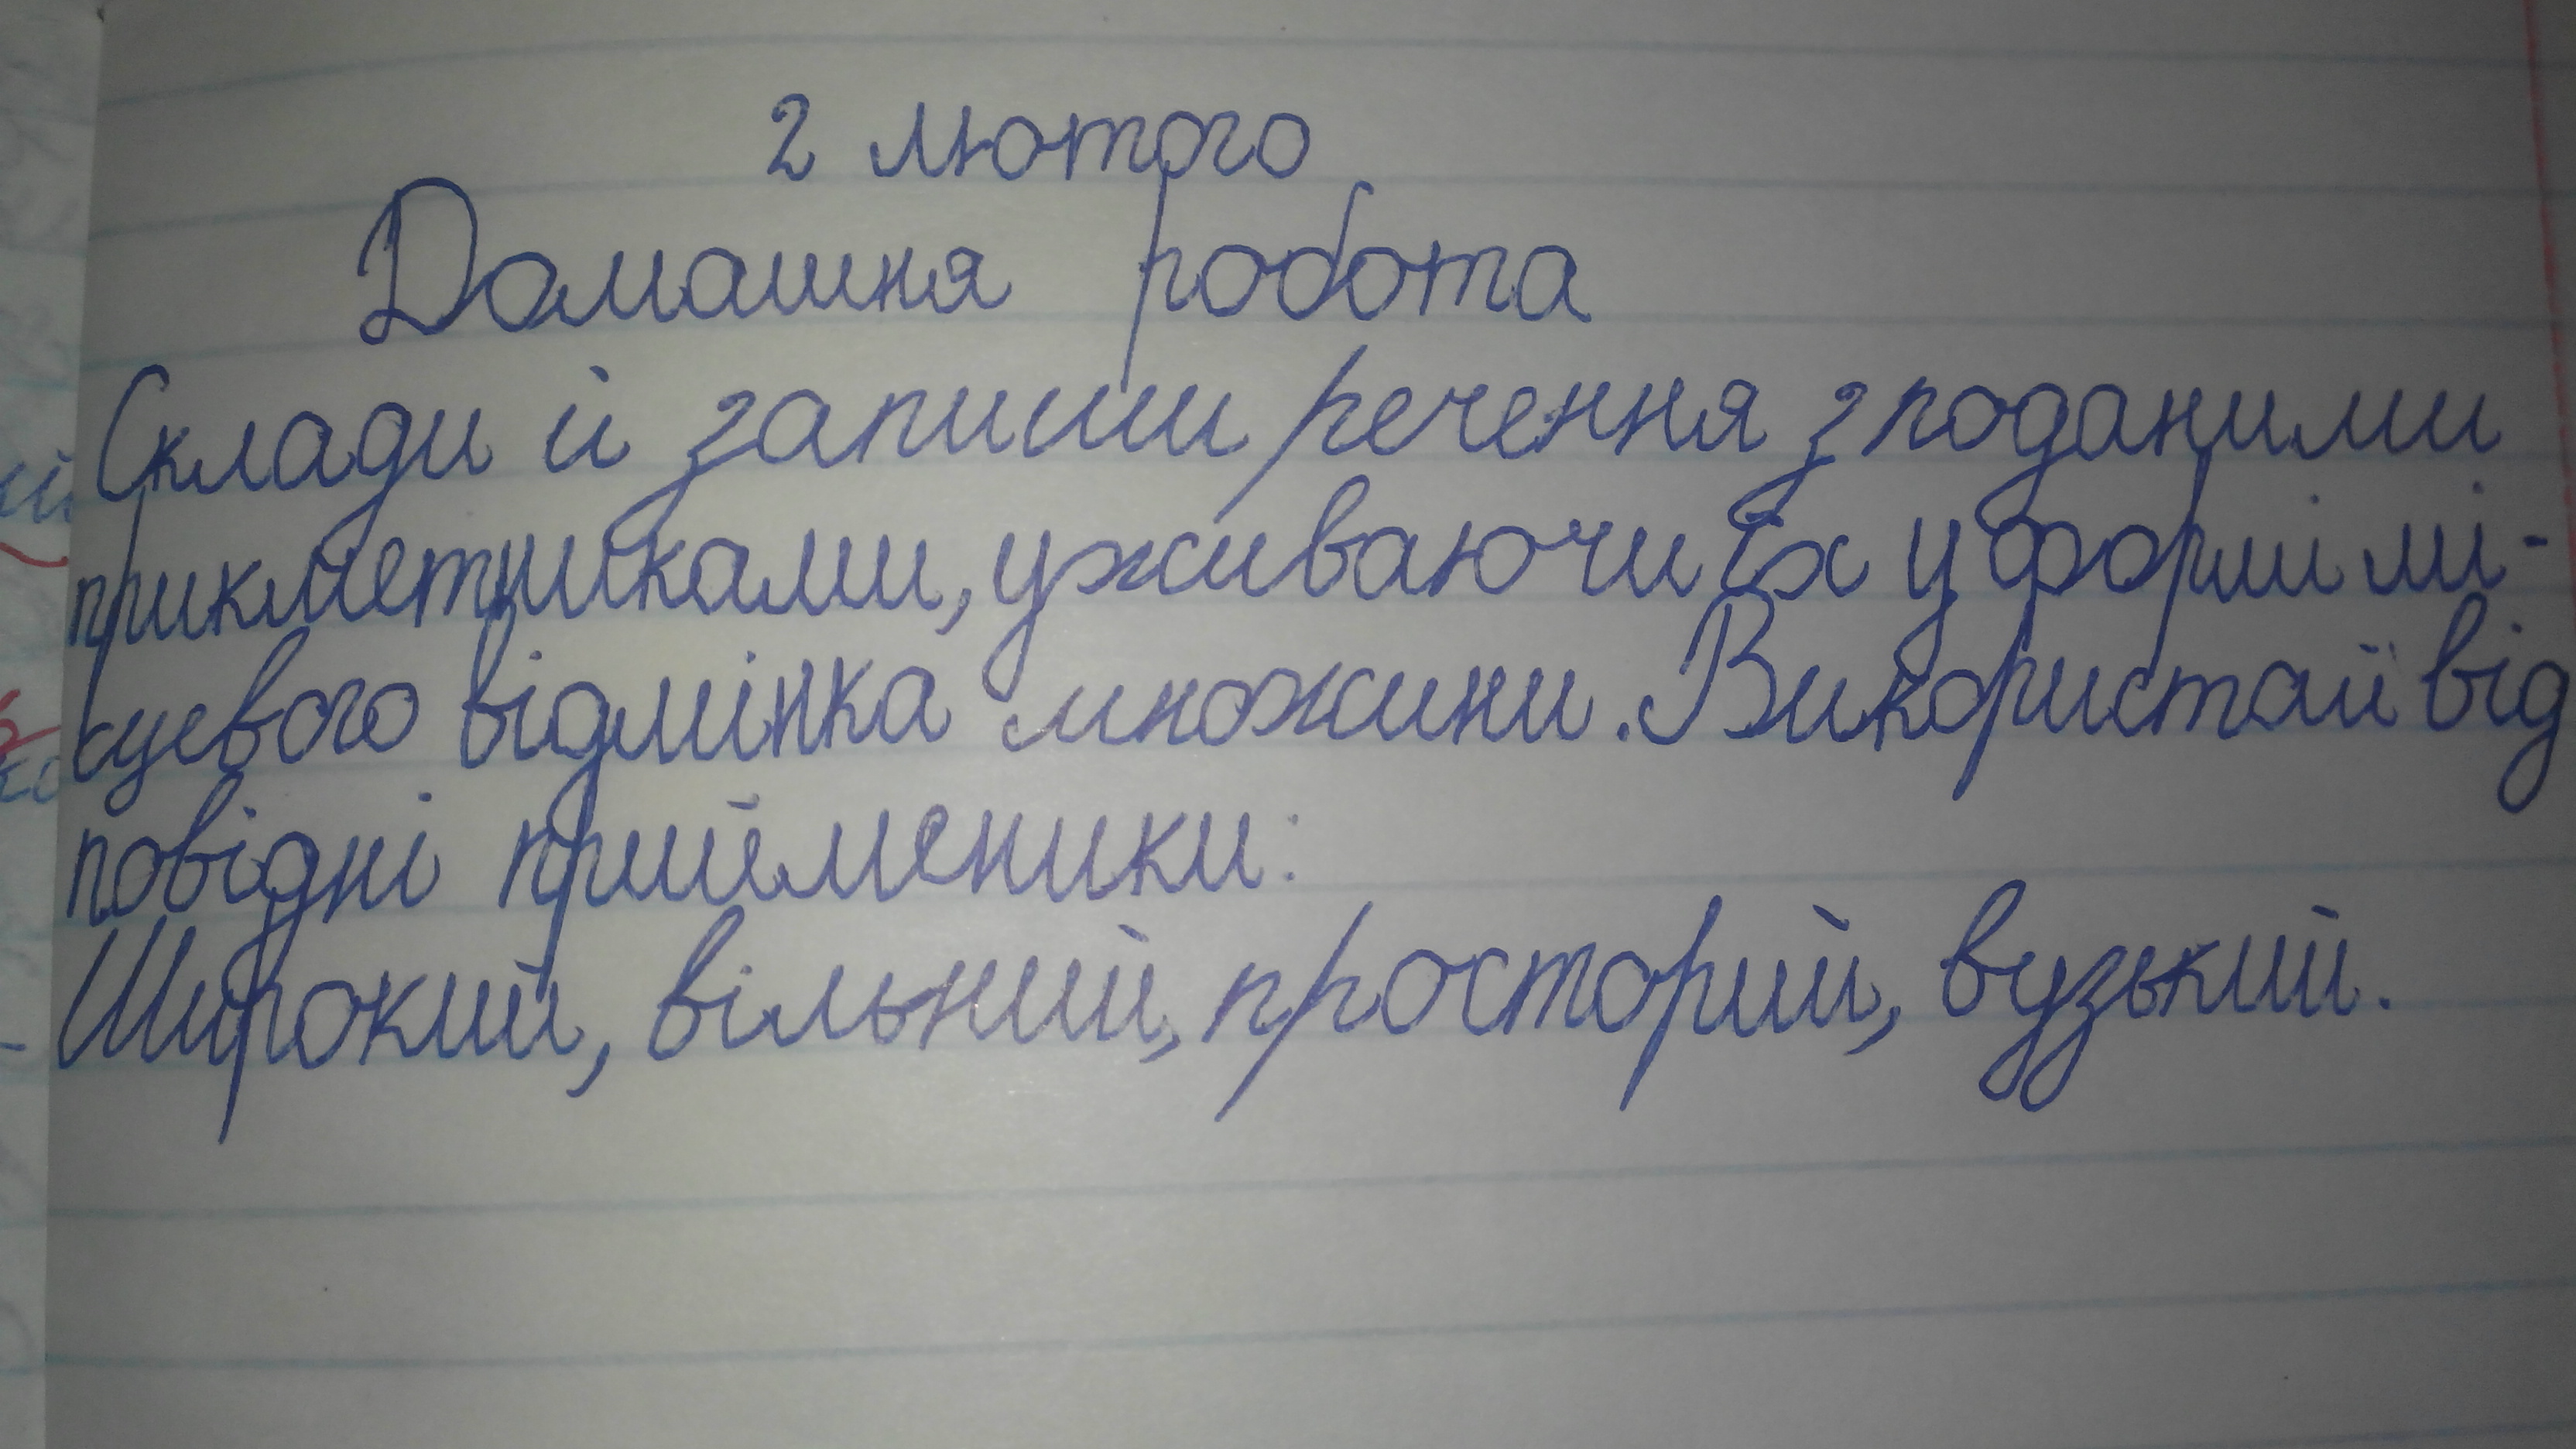 2 лютого
Домашня робота
Склади й запиши речення з поданими
прикметниками, уживаючи їх у формі мі-
сцевого відмінка множини. Використай від
повідні прийменики:
Широкий, вільний, просторий, вузький.